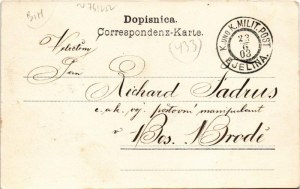 BiH
Dopisnica.
Correspondenz-Karte.
(433)
K. UND K. MILIT. POST
23
6
03
BJELINA.
Velectěný
Pan
Richard Fadrus
c. a k. voj. poštovní manipulant
Bos. Brodě